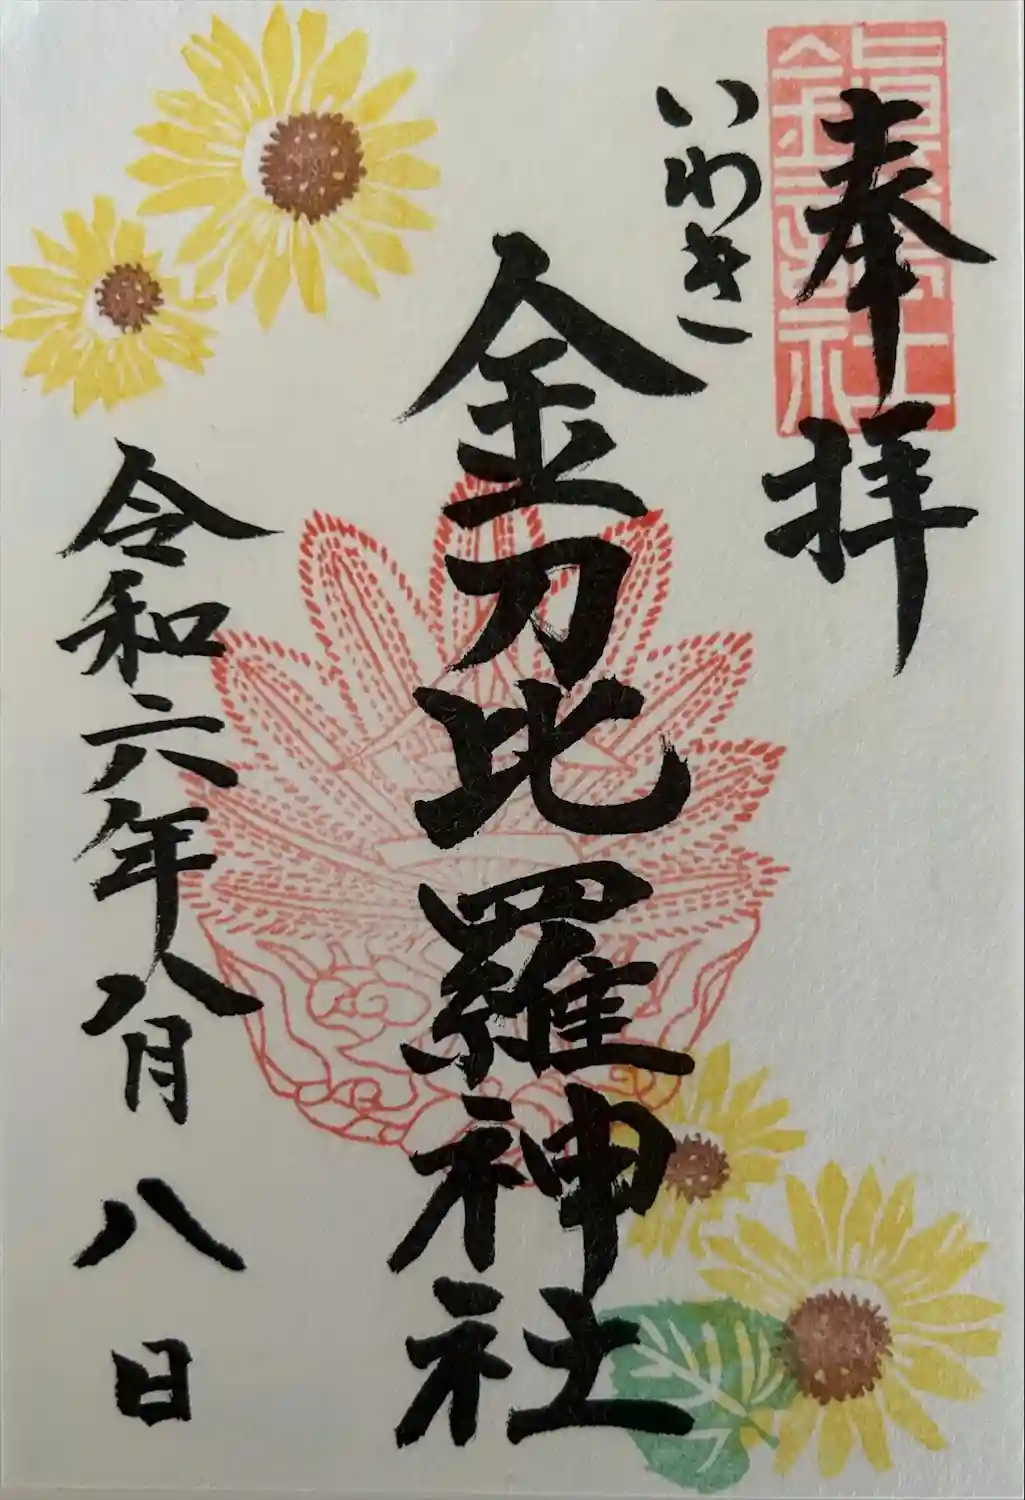 奉拝
いわき
金刀比羅神社
令和六年八月八日